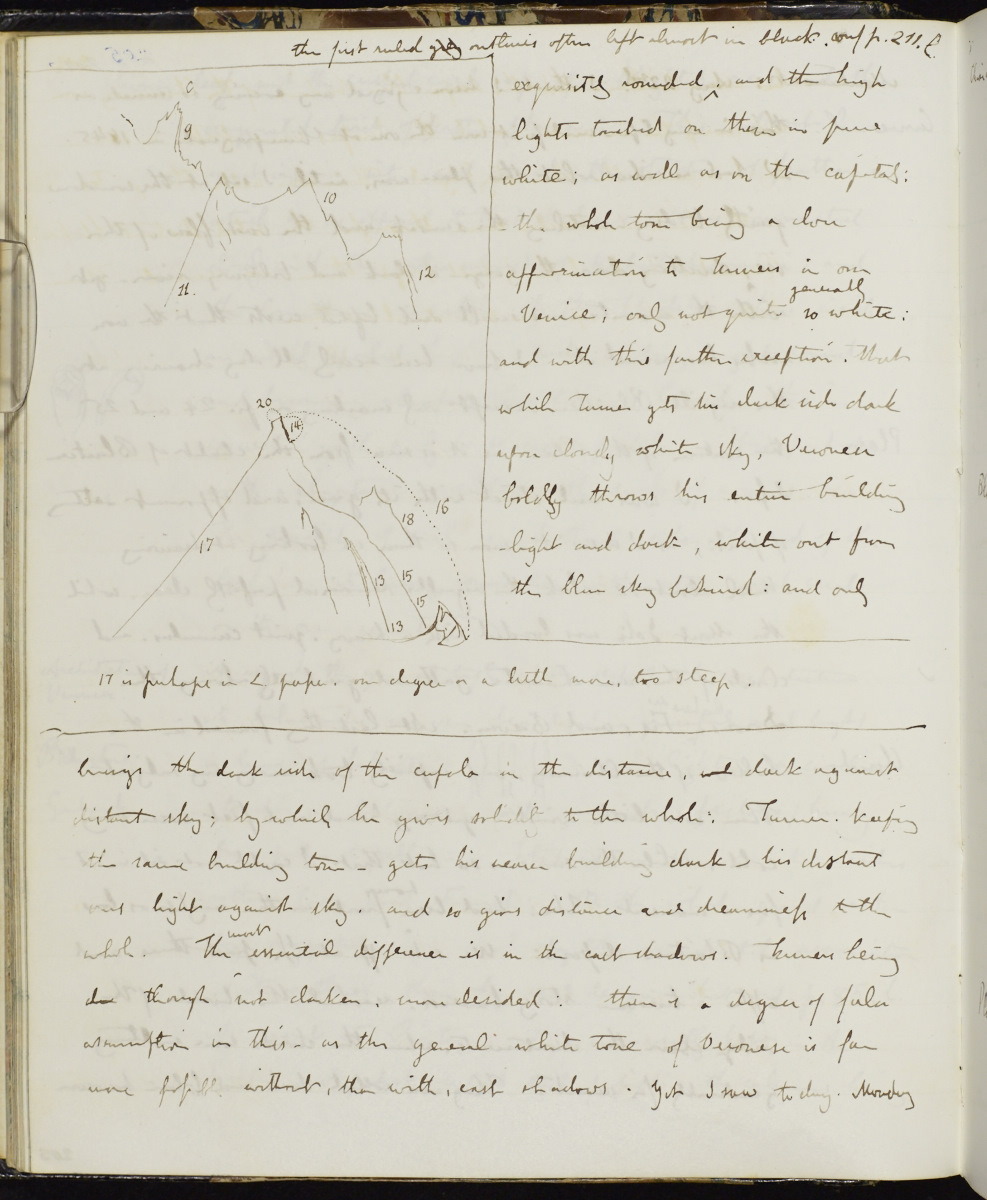 the first ruled grey outlines often left almost in black. conf p. 211.
exquisitely rounded, and the high
lights touched on them in pure
white; as well as on the capitals:
- the whole tone being a close
approximation to Turners in our
generally
Venice; only not quite so white:
and with this further exception. that
while Turner gets his dark side dark
upon cloudy white sky, Veronese
boldly throws his entire building
- light and dark, white out from
the blue sky behind: and only
9
10
11.
12
20
14
16
18
17
13
15
15
13
17 is perhaps in L paper. one degree or a little more, too steep.
brings the dark side of the cupola in the distance, dark against
distant sky; by which he gives solidity to the whole: Turner. keeping
the same building tone - gets his nearer building dark - his distant
ones light against sky. and so gives distance and dreaminess to the
most
whole. The essential difference is in the cast shadows. Turners being
though not darker, more decided: there is a degree of false
assumption in this - as the general white tone of Veronese is far
more possible without, than with, cast shadows. Yet I saw to day. Monday